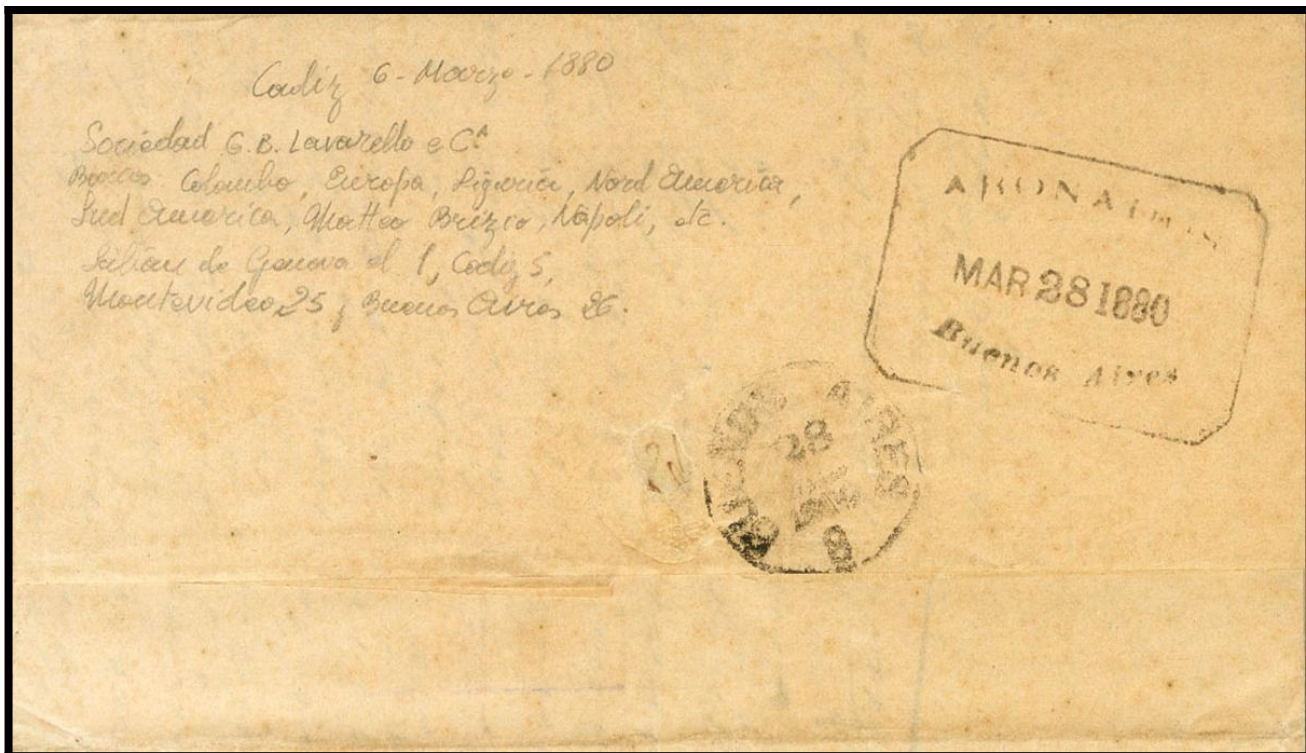 Cadiz 6 - Marzo - 1880
Sociedad G.B. Lavarello e Cª
Barcos Colombo, Europa, Liguria, Nord America,
Sud America, Matteo Bruzzo, Napoli, etc.
Salían de Genova el 1, Cadiz 5,
Montevideo 25, Buenos Aires 26.
MAR 28 1880
Buenos Aires
BUENOS AIRES
28
8